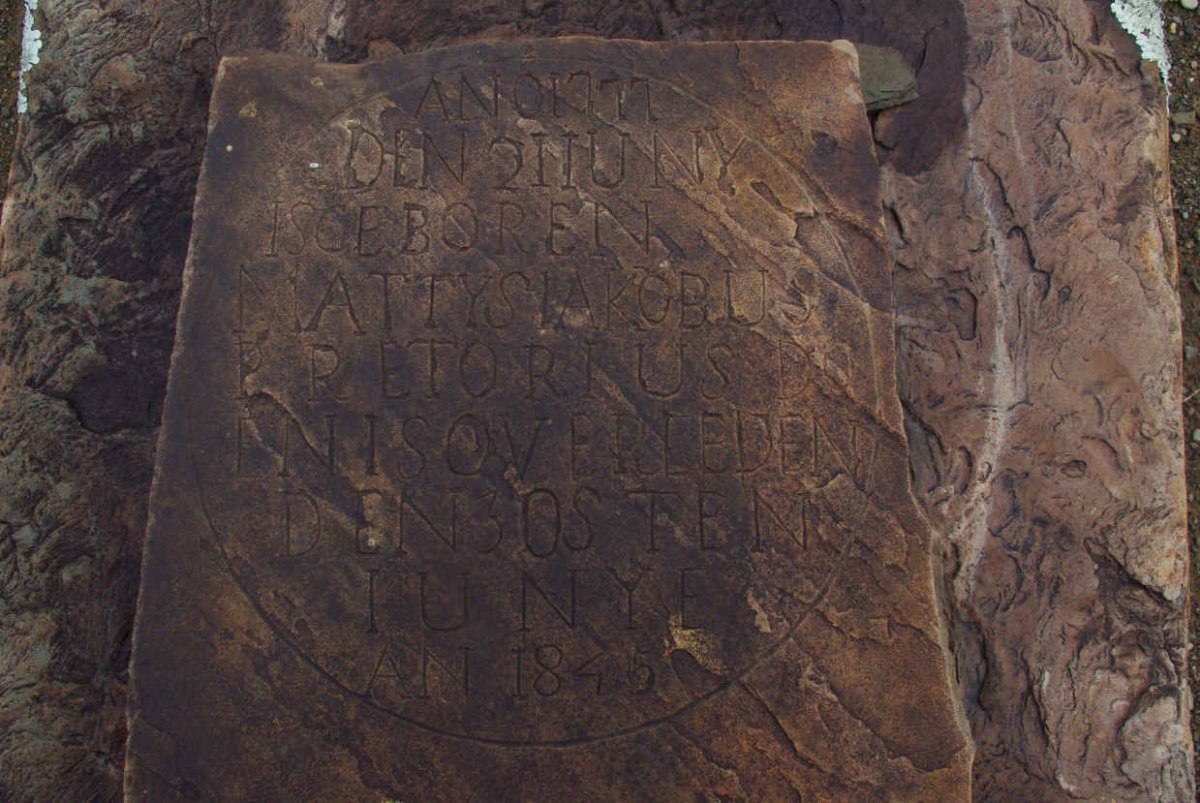 ANO 1777
DEN 2 IIUNY
IS GEBOREN
MATTYS IAKOBUS
PRETORIUS DA
EN IS OVERLEDEN
DEN 30 STEN
IUNYE
AN 1845